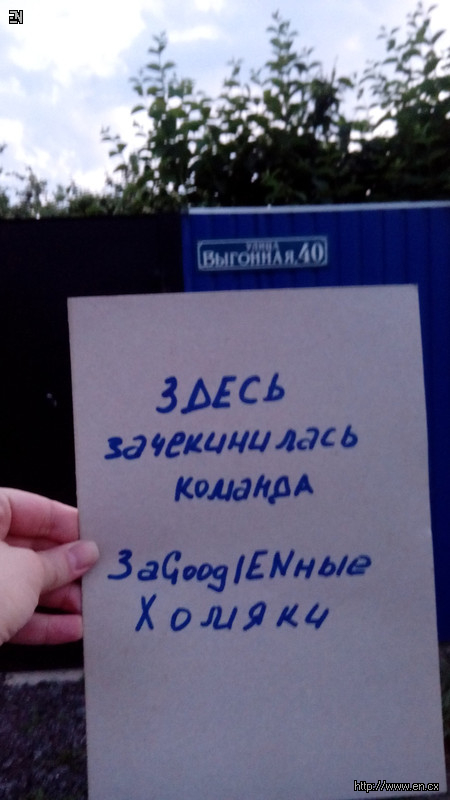 EN
УЛИЦА
ВЫГОННАЯ, 40
ЗДЕСЬ
зачекинилась
команда
ЗаGooglENные
Хомяки
http://www.en.cx